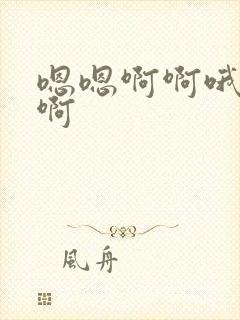 嗯嗯啊啊哦
啊
風舟